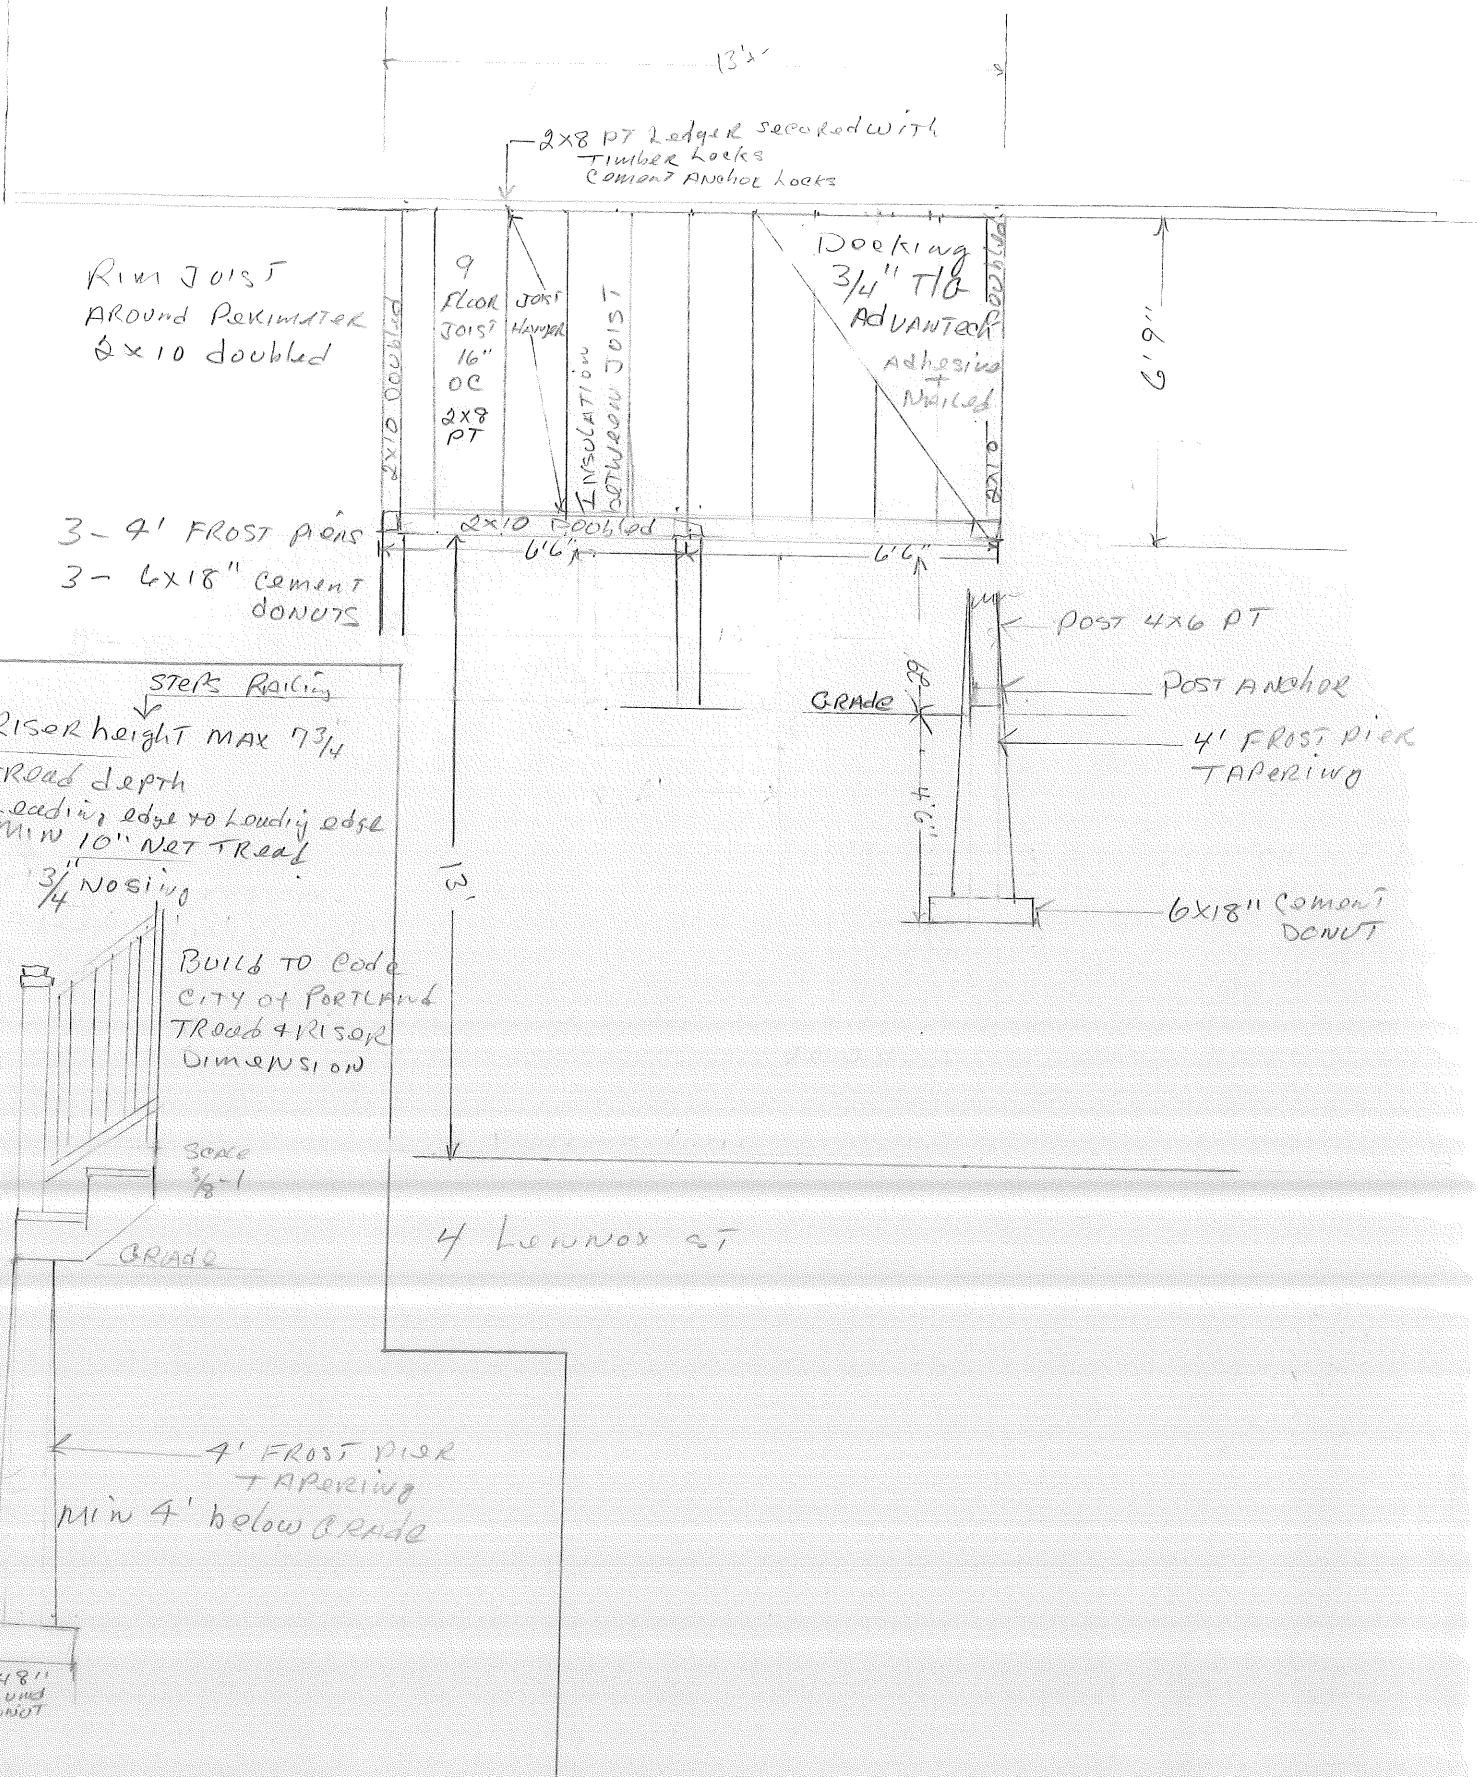 13'
2x8 PT Ledger secured with
Timber Locks
Cement Anchor Locks
Rim Joist
Around Perimater
2x10 doubled
2x10 Doubled
9
Floor
Joist
16"
OC
2x8
PT
Joist
Hanger
Insulation
between Joist
Decking
3/4" T/G
Advantech
Adhesive
+
Nailed
2x10 Doubled
6'9"
3- 4' Frost Piers
3- 6x18" Cement
donuts
2x10 Doubled
6'6"
6'6"
Post 4x6 PT
Post Anchor
Grade
4' Frost Pier
Tapering
4'6"
6x18" Cement
Donut
13'
Steps Railing
Riser height max 7 3/4
Tread depth
Leading edge to Leadig edge
Min 10" Net Tread
3/4" Nosing
Build to Code
City of Portland
Tread & Riser
Dimension
Scale
3/8-1
Grade
4 Lennox St
4' Frost Pier
Tapering
Min 4' below Grade
48"